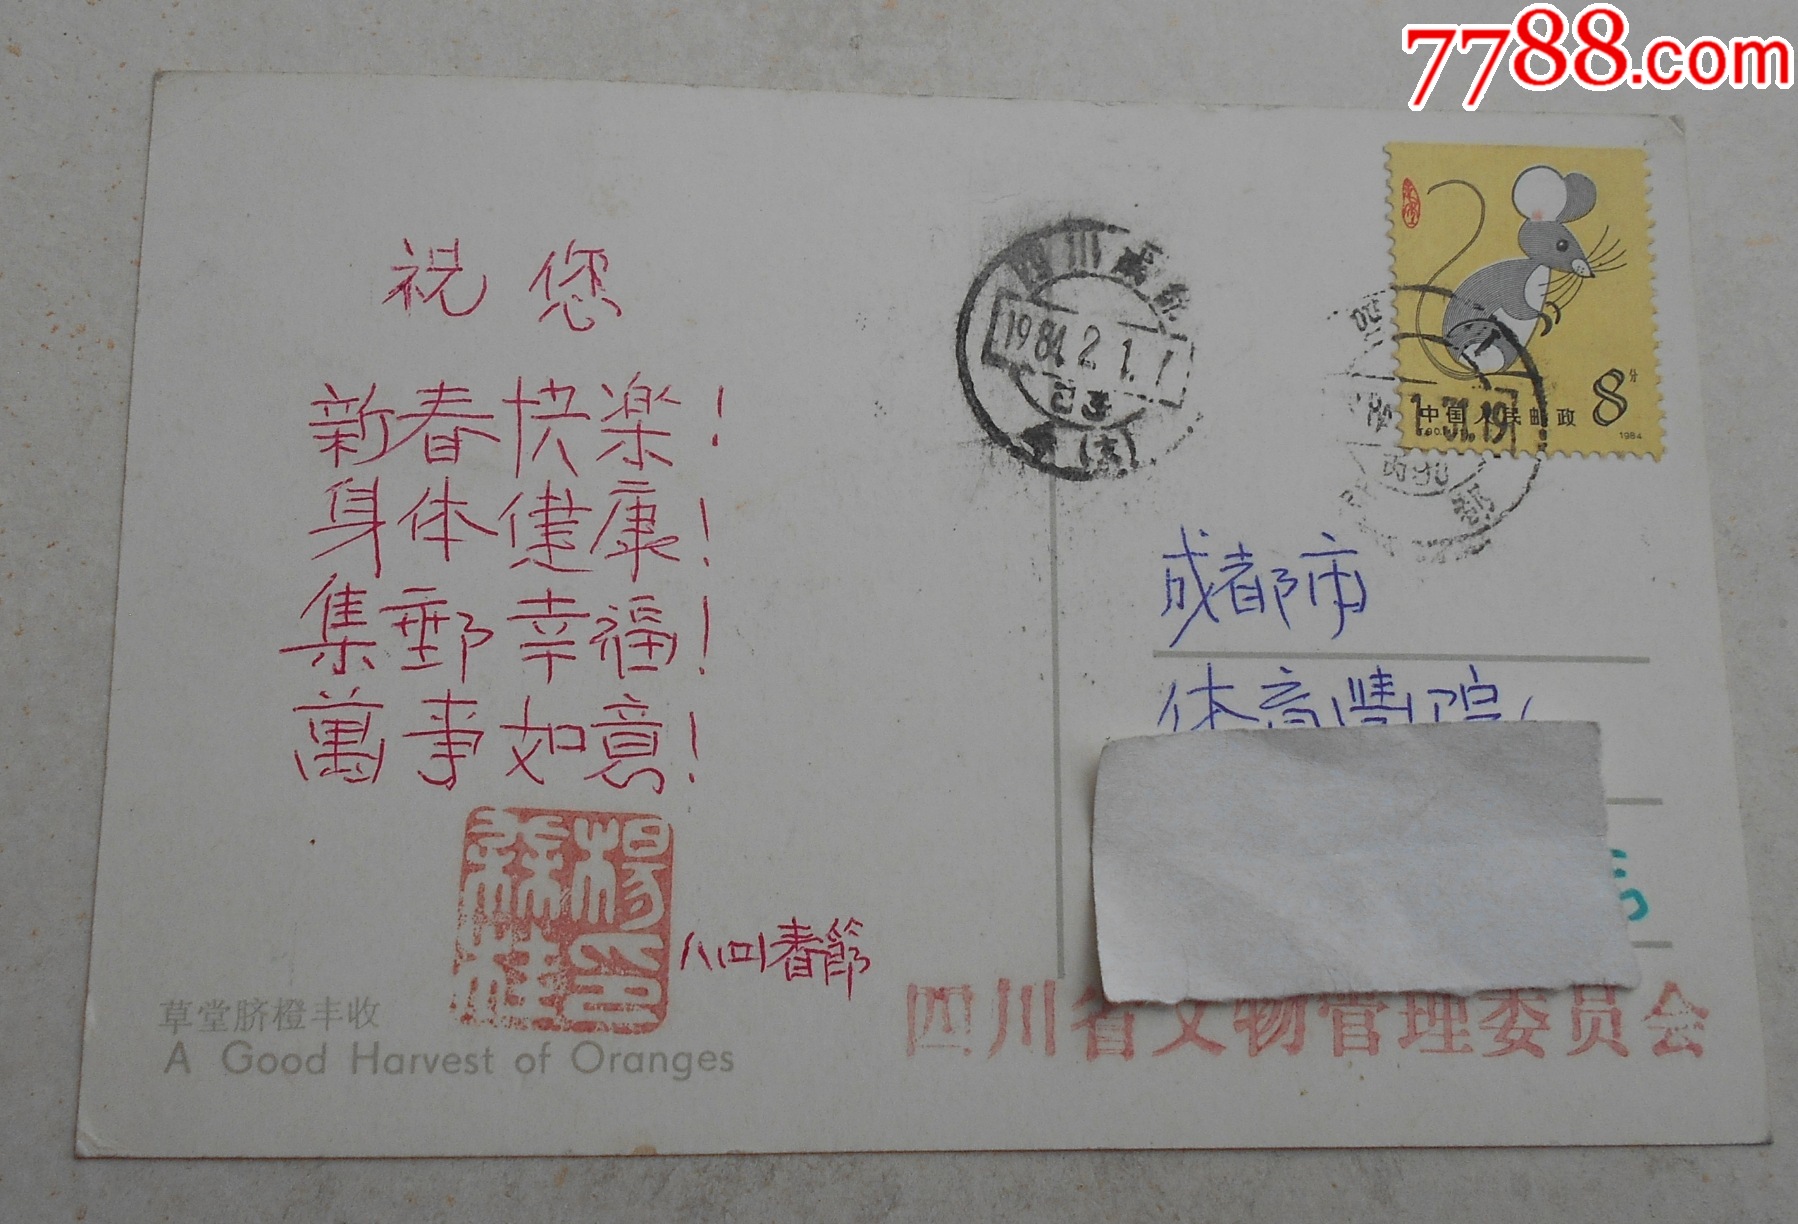 7788.com
祝您
新春快楽!
身体健康!
集郵幸福!
萬事如意!
八四春節
草堂脐橙丰收
A Good Harvest of Oranges
四川成都
1984.2.1.
8分
中国人民邮政
1984
84.1.31.19
成都市
体育
四川省文物管理委员会